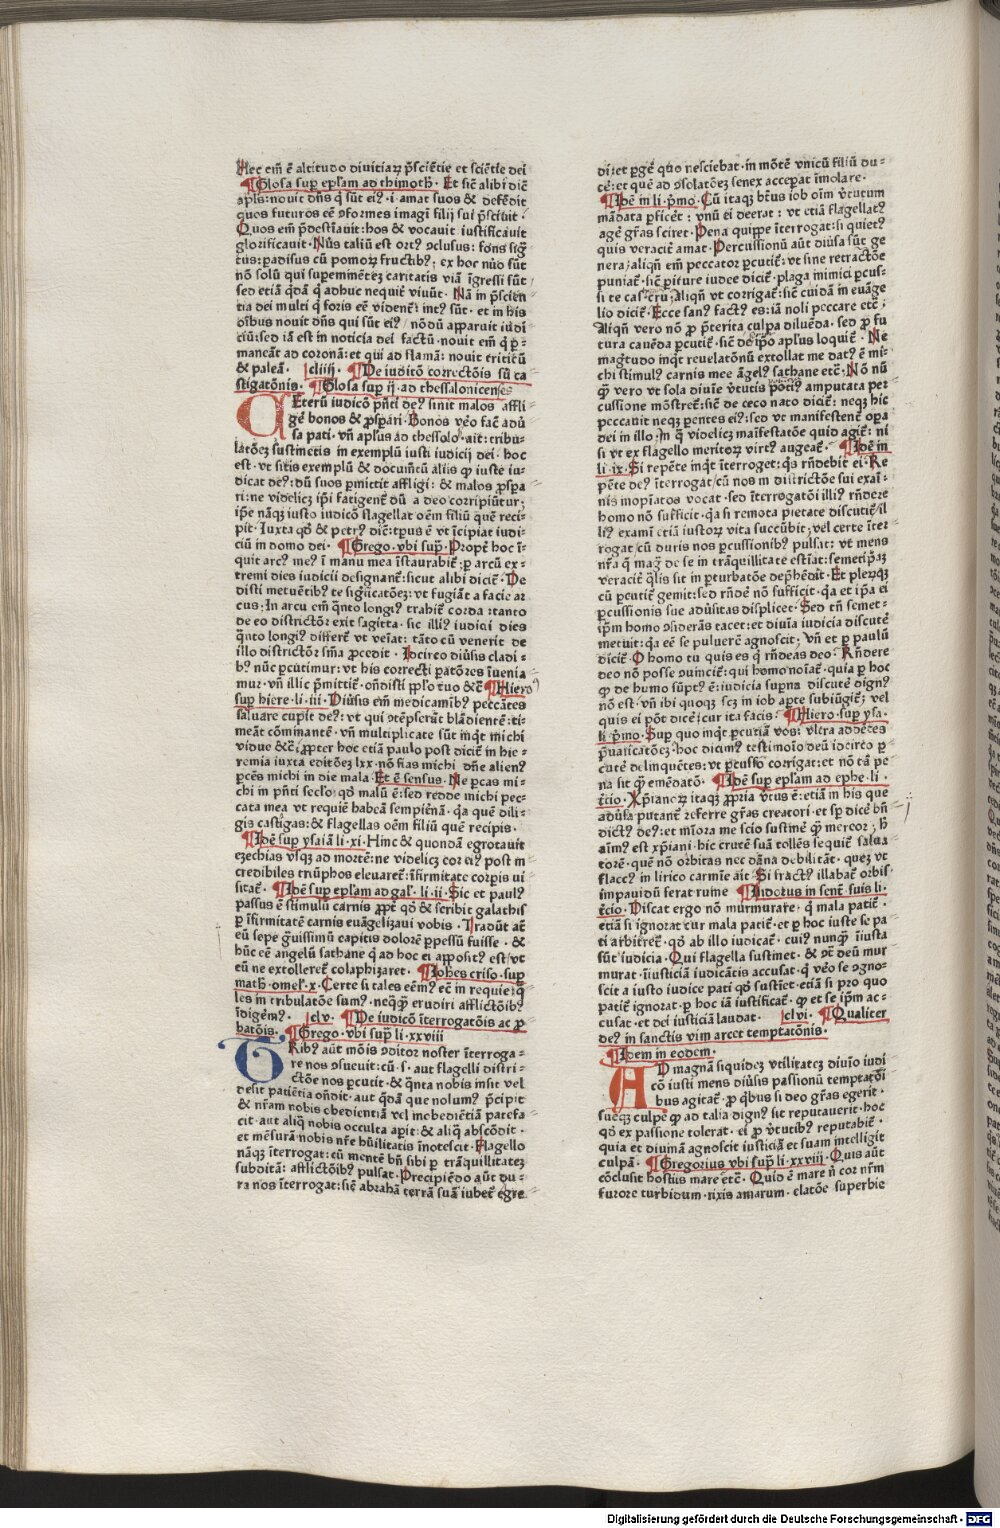 Hec em̄ ē altitudo divitiaꝝ p̄sciētie et sciētie dei
¶ Glosa suꝑ epl̄am ad thimoth̄. Et sic̄ alibi dic̄
apl̄s: novit dn̄s q̄ sūt eiꝰ .i. amat suos & defēdit
quos futuros eē ꝯformes imagī filij sui p̄scivit.
Quos em̄ p̄destīavit: hos & vocavit iustificauit
glorificauit. Nūs taliū est ortꝰ ꝯclusus: fons siḡ
tus: padisus cū pomoꝝ fructibꝰ; ex hoc nūo sūt
nō solū qui supeminētes caritatis viā īgressi sūt
sed etiā q̄dā q̄ adhuc nequit̄ viuūt. Nā in p̄scien
tia dei multi q̄ foris eē vident̄: intꝰ sūt. et in his
oībus nouit dn̄s qui sūt eiꝰ/ nōdū apparuit iudi
ciū: sed iā est in noticia dei factū: nouit em̄ q̄ ꝑ-
maneāt ad coronā: et qui ad flamā: nouit triticū
& paleā. cliiij. ¶ De iuditō correctōis sū ca
stigatōnis. ¶ Glosa sup ij. ad thessalonicenses
CEterū iudicō pn̄ti deꝰ sinit malos affli
gē bonos & ꝓspari. Bonos ve͂o fac̄ adū
sa pati. vn̄ apl̄us ad thessolo. ait: tribu-
latōeꝫ sustinetis in exemplū iusti iudicij dei. hoc
est. vt sitis exemplū & documētū aliis ꝙ iuste iu-
dicat deꝰ: dū suos ꝑmittit affligi: & malos ꝓspa
ri: ne videlicꝫ ip̄i fatigent̄ dū a deo corripiūtur;
ip̄e nāqꝫ iusto iudicō flagellat oēm filiū quē reci-
pit. Iuxta qd̄ & petrꝰ dic̄: tpus ē vt īcipiat iudi-
ciū in domo dei. ¶ Grego. vbi sup̄. Propt̄ hoc ī-
quit arcꝰ meꝰ ī manu mea īstaurabit̄; ꝑ arcū ex-
tremi dies iudicii designant̄: sicut alibi dicit̄. De
disti metuētibꝰ te sig̅ificatōeꝫ: vt fugiāt a facie ar
cus; In arcu em̄ q̄nto longiꝰ trahit̄ corda: tanto
de eo districtōr exit sagitta. sic illiꝰ iudici dies
q̄nto longiꝰ differt̄ vt veīat: tāto cū venerit de
illo districtōr sn̄ia ꝓcedit. Idcirco diūsis cladi-
bꝰ nūc ꝑcutimur: vt his correcti patōres īuenia
mur. vn̄ illic p̄mittit̄. on̄disti pp̄lo tuo &c̄ ¶ Hiero
suꝑ hiere. li. iii. Diūsis em̄ medicamībꝰ peccātes
saluare cupit deꝰ: vt qui ꝯtēpserūt blādientē: ti-
meāt cōminantē. vn̄ multiplicate sūt inq̄t michi
vidue &c̄: ꝓpter hoc etiā paulo post dicit̄ in hie-
remia iuxta editōeꝫ lxx. nō fias michi dn̄e alienꝰ
ꝑcēs michi in die mala. Et ē sensus. Ne ꝑcas mi-
chi in pn̄ti seclo: qd̄ malū ē: sed redde michi pec-
cata mea vt requiē habeā sempit̄nā. q̄a quē dili-
gis castigas: & flagellas oēm filiū quē recipis.
¶ Idē sup ysaiā li. xi. Hinc & quondā egrotauit
eꝫechias vsqꝫ ad mortē: ne videlicꝫ cor eiꝰ post in
credibiles triūphos eleuaret̄: īfirmitate corpis ui
sitat̄. ¶ Idē sup epl̄am ad gal̄. li. ii. Sic et paulꝰ
passus ē stimulū carnis ꝓpt̄ qd̄ & scribit galathis
ꝑ īfirmitatē carnis euāgelizaui vobis. Tradūt at̄
eū sepe g̅uissimū capitis dolorē ꝑpessū fuisse. &
hūc eē angelū sathane q̄ ad hoc ei appositꝰ est/ vt
eū ne extolleret̄ colaphizaret. ¶ Iohēs criso. sup
math̄. omel̄. x. Certe si tales eēmꝰ ec̄ in requie: q̄
les in tribulatōe sumꝰ. neqꝗ̄ erudiri afflictōibꝰ
īdigēmꝰ. clv. ¶ De iudicō īterrogatōis ac ꝓ
batōis. ¶ Grego. vbi sup̄ li. xxviii
TRibꝰ aūt mōis ꝯditor noster īterroga-
re nos ꝯsueuit: cū .s. aut flagelli distri-
ctōe nos ꝑcutit. & q̄nta nobis insit vel
desit patiētia on̄dit. aut q̄dā que nolumꝰ p̄cipit
& nr̄am nobis obedientiā vel inobediētiā patefa
cit. aut aliq̄ nobis occulta apit: & aliq̄ abscōdit.
et mēsurā nobis nr̄e hūilitatis īnotescit. Flagello
nāqꝫ īterrogat: cū mentē bn̄ sibi ꝑ trāquillitateꝫ
subditā: afflictōibꝰ pulsat. Precipiēdo aūt du-
ra nos īterrogat: sic̄ abrahā terrā suā iubet̄ egre-
diret ꝑgē quo nesciebat. in mōtē vnicū filiū du-
cē: et quē ad ꝯsolatōeꝫ senex acceꝑat īmolare.
¶ Idē in li. pm̄o. Cū itaqꝫ bt̄us iob oīm v̄tutum
mādata ꝑficet̄: vnū ei deerat: vt etiā flagellatꝰ
agē gr̄as sciret. Pena quippe īterrogat: si quietꝰ
quis veracit̄ amat. Percussionū aūt diūsa sūt ge
nera; aliqn̄ em̄ peccator ꝑcutit̄: vt sine retractōe
puniat̄. sic̄ piture iudee dicit̄. plaga inimici ꝑcus-
si te cas. cru. Aliqn̄ vt corrigat̄: sic̄ cuidā in euāge
lio dicit̄. Ecce sanꝰ factꝰ es: iā noli peccare etc̄;
Aliqn̄ vero nō ꝓ p̄terita culpa diluēda. sed ꝓ fu
tura cauēda ꝑcutit̄. sic̄ de ip̄o apl̄us loquit̄. Ne
magītudo inq̄t reuelatōnū extollat me datꝰ ē mi-
chi stimulꝰ carnis mee āgelꝰ sathane etc̄; Nō nū
q̄ vero vt sola diuīe v̄tutis potiꝰ amputata per
cussione mōstret̄: sic̄ de ceco nato dicit̄: neqꝫ hic
peccauit neqꝫ ꝑentes eiꝰ: sed vt manifestent̄ opa
dei in illo; In q̄ videlicꝫ maīfestatōe quid agit̄: ni
si vt ex flagello meritoꝝ virtꝰ augeat̄. ¶ Idē in
li. ix. Si repēte inq̄t īterroget: q̄s rn̄debit ei. Re
pēte deꝰ īterrogat/ cū nos in districtōe sui exaī-
nis inopīatos vocat. sed īterrogatōi illiꝰ rn̄dere
homo nō sufficit. q̄a si remota pietate discutit̄/ il
liꝰ examī etiā iustoꝝ vita succūbit; vel certe īter
rogat/ cū duris nos ꝑcussionibꝰ pulsat: vt mens
nr̄a q̄ magꝰ de se in trāquillitate estīat: semetip̄aꝫ
veracit̄ q̄lis sit in ꝑturbatōe dep̄hēdit. Et pleꝝqꝫ
cū ꝑcutit̄ gemit: sed rn̄dē nō sufficit. q̄a et ip̄a ei
ꝑcussionis sue adūsitas displicet. Sed tn̄ semet-
ip̄m homo ꝯsiderās tacet: et diuīa iudicia discutē
metuit: q̄a eē se puluerē agnoscit; Vn̄ et ꝑ paulū
dicit̄. O homo tu quis es q̄ rn̄deas deo. Rn̄dere
deo nō posse ꝯuincit̄: qui homo noīat̄. quia ꝑ hoc
ꝙ de humo sūptꝰ ē: iudicia supna discutē dignꝰ
nō est. vn̄ ibi quoqꝫ scꝫ in iob apte subiūgit̄; vel
quis ei pōt dicē: cur ita facis. ¶ Hiero. sup ysa.
li. pm̄o. Sup quo inq̄t ꝑcutiā vos: vltra addētes
p̄uaricatōeꝫ. hoc dicimꝰ testimoīo deū idcirco ꝑ
cutē delinquētes: vt ꝑcussū corrigat: et nō tā pe
na sit q̄ emēdatō. ¶ Idē sup epl̄am ad ephe. li.
t̄cio. Xp̄ianoꝝ itaqꝫ ꝓpria v̄tus ē: etiā in his que
adūsa putant̄ referre gr̄as creatori. et sp̄ dicē bn̄
dictꝰ deꝰ: et mīora me scio sustinē ꝙ mereor; h̄
aīmꝰ est xp̄iani. hic crucē suā tollēs sequit̄ salua
torē. quē nō orbitas nec dāna debilitāt. queꝫ vt
flaccꝰ in lirico carmīe ait. Si fractꝰ illabat̄ orbis
impauidū ferat ruine ¶ Iudorus in sent̄. suis li.
t̄cio. Discat ergo nō murmurare. q̄ mala patit̄.
etiā si ignorat cur mala patit̄. et ꝑ hoc iuste se pa
ti arbitret̄. qd̄ ab illo iudicat̄. cuiꝰ nunq̄ īiusta
sūt iudicia. Qui flagella sustinet. & ꝯt̄ deū mur
murat. īiusticiā iudicātis accusat. q̄ ve͂o se ꝯgno-
scit a iusto iudice pati qd̄ sustiet̄: etiā si pro quo
patit̄ ignorat. ꝑ hoc iā iustificat̄. ꝙ et se ip̄m ac-
cusat. et dei iusticiā laudat. clvi. ¶ Qualiter
deꝰ in sanctis vim arcet temptatōnis.
¶ Idem in eodem.
AD magnā siquideꝫ vtilitateꝫ diuīo iudi
cō iusti mens diūsis passionū temptatōi
bus agitat̄. ꝓ q̄bus si deo gr̄as egerit.
sueqꝫ culpe ꝙ ad talia dignꝰ sit reputauerit. hoc
qd̄ ex passione tolerat. ei ꝓ v̄tutibꝰ reputabit̄.
quia et diuinā agnoscit iusticiā et suam intelligit
culpā. ¶ Gregorius vbi sup̄ li. xxviij. Quis aūt
cōclusit hostiis mare etc̄. Quid ē mare n̄ cor nr̄m
furore turbidum. rixis amarum. elatōe superbie
Digitalisierung gefördert durch die Deutsche Forschungsgemeinschaft - DFG